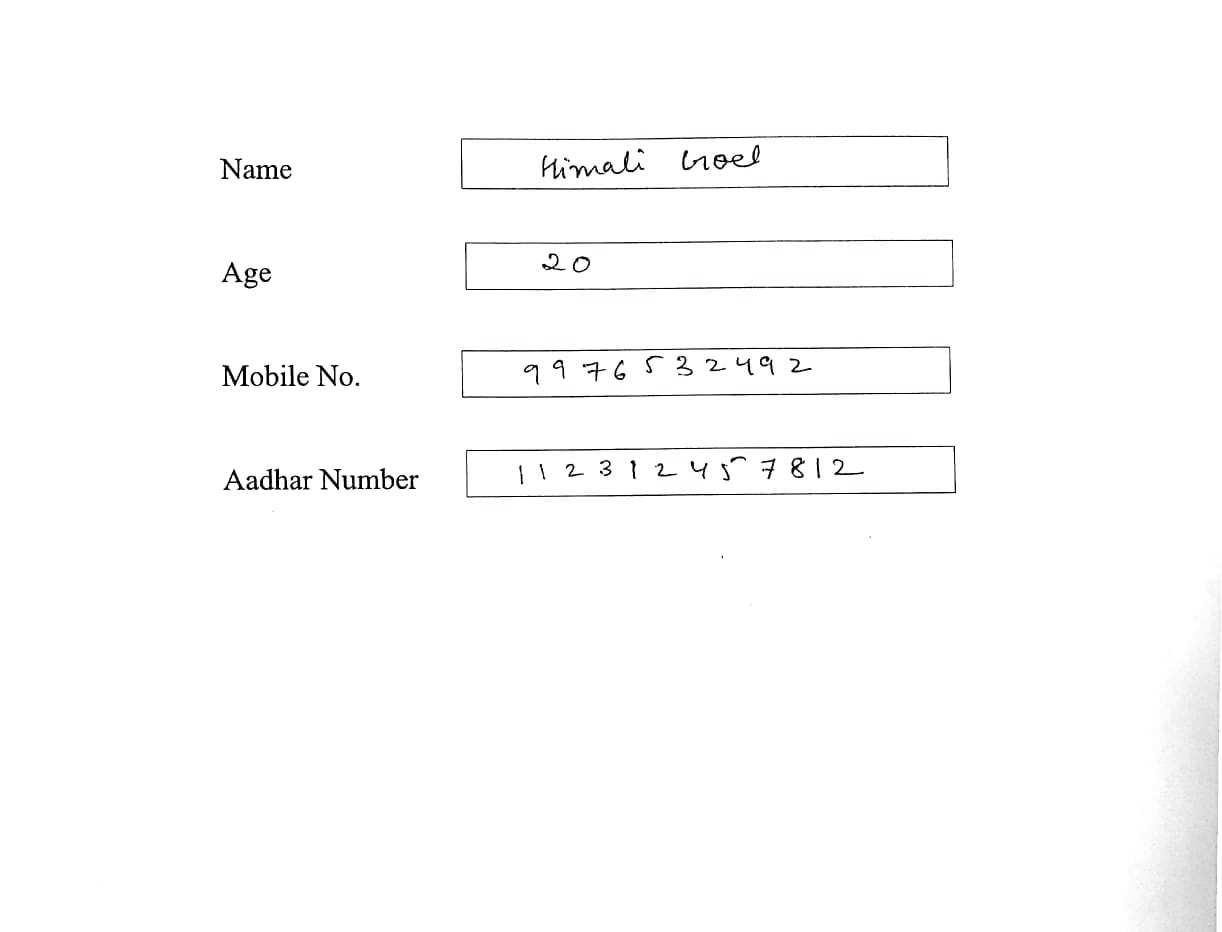 Name Himali Goel
Age 20
Mobile No. 9976532492
Aadhar Number 112312457812